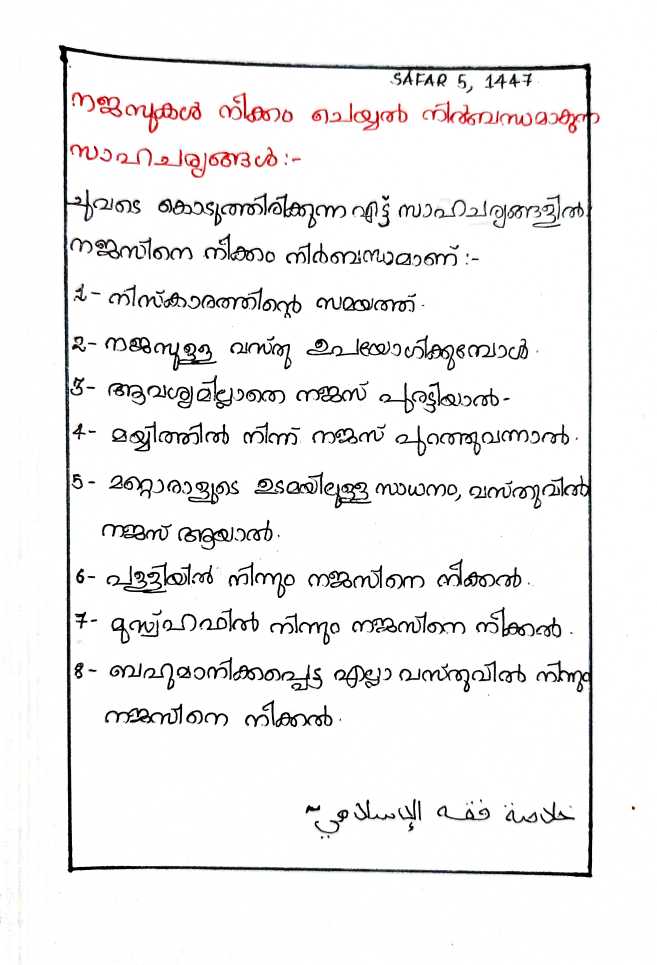 SAFAR 5, 1447
നജസുകൾ നീക്കം ചെയ്യൽ നിർബന്ധമാകുന്ന
സാഹചര്യങ്ങൾ :-
ചുവടെ കൊടുത്തിരിക്കുന്ന എട്ട് സാഹചര്യങ്ങളിൽ
നജസിനെ നീക്കം നിർബന്ധമാണ് :-
1- നിസ്കാരത്തിന്റെ സമയത്ത്.
2- നജസുള്ള വസ്തു ഉപയോഗിക്കുമ്പോൾ.
3- ആവശ്യമില്ലാതെ നജസ് പുരട്ടിയാൽ-
4- മയ്യിത്തിൽ നിന്ന് നജസ് പുറത്തുവന്നാൽ.
5- മറ്റൊരാളുടെ ഉടമയിലുള്ള സാധനം, വസ്തുവിൽ
നജസ് ആയാൽ.
6- പള്ളിയിൽ നിന്നും നജസിനെ നീക്കൽ.
7- മുസ്വ്ഹഫിൽ നിന്നും നജസിനെ നീക്കൽ.
8- ബഹുമാനിക്കപ്പെട്ട എല്ലാ വസ്തുവിൽ നിന്നും
നജസിനെ നീക്കൽ.
خلاصة فقه الإسلامي~